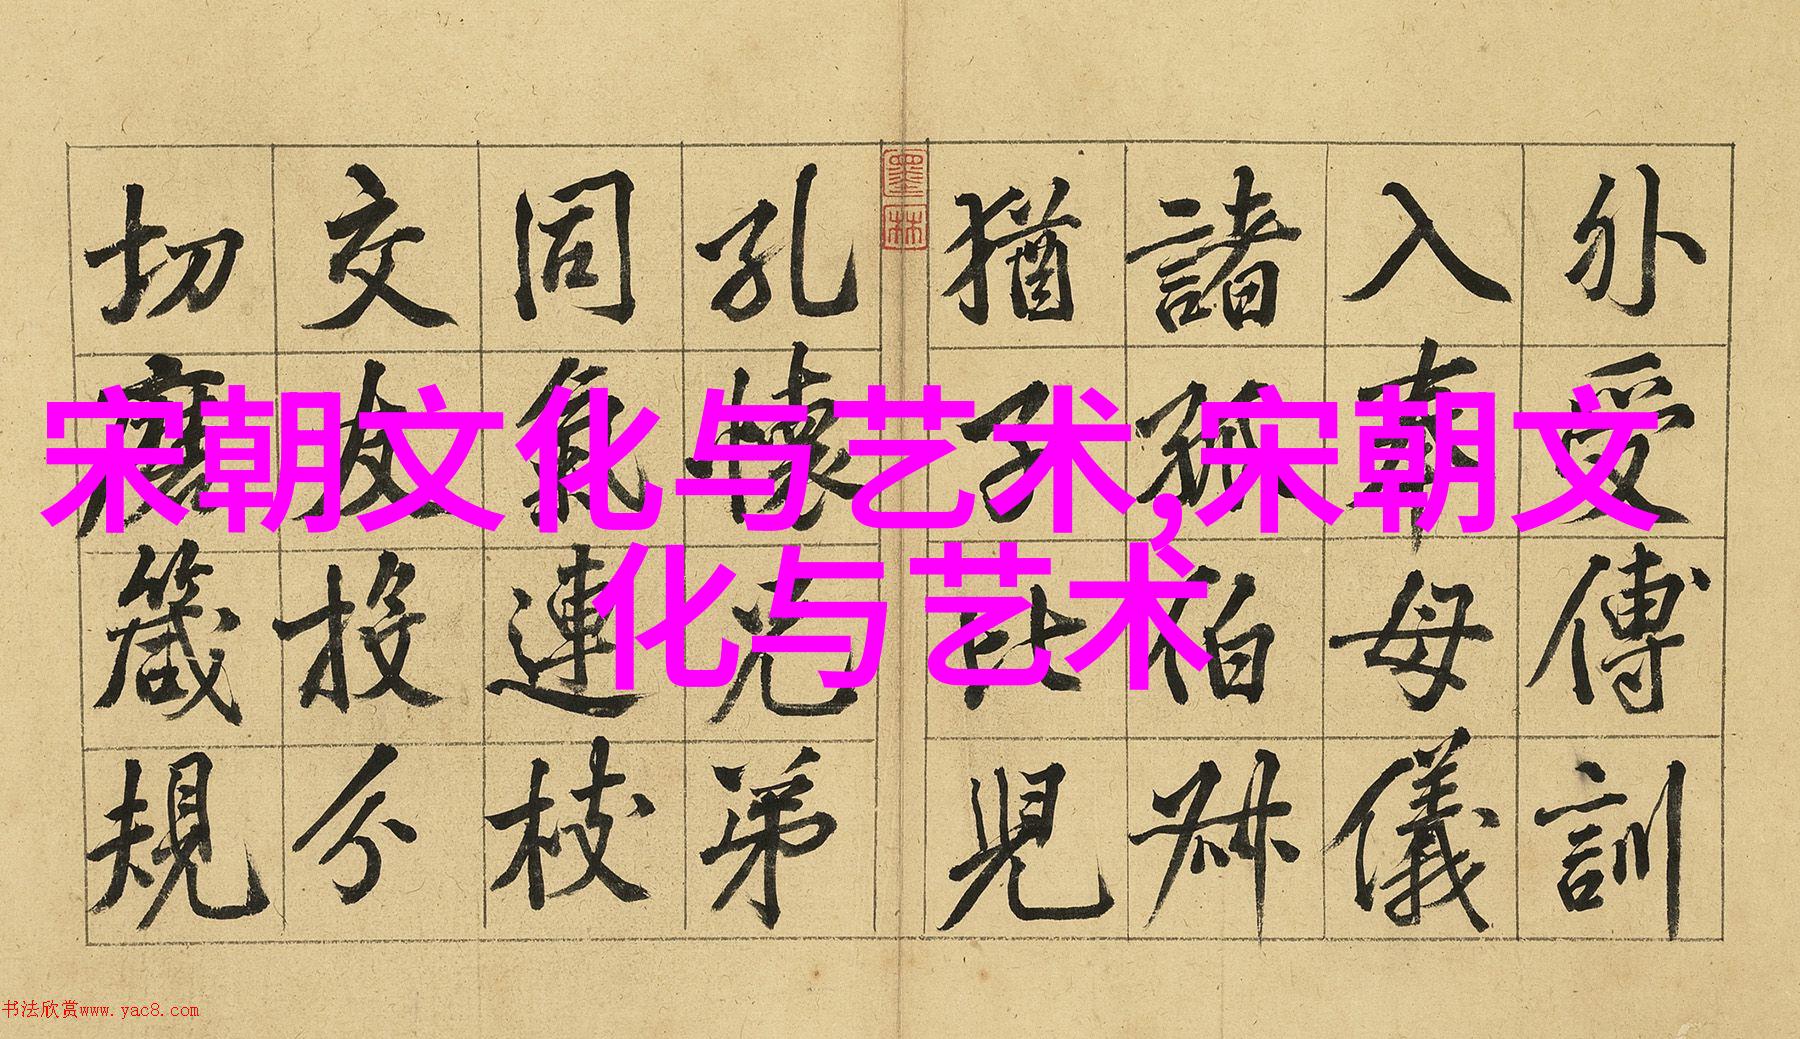 宋朝文化与艺术,宋朝文
化与艺术
外受傅訓
入奉母儀
諸姑伯叔
猶子比兒
墨林
孔懷兄弟
同氣連枝
交友投分
切磨箴規
书法欣赏www.yac8.com